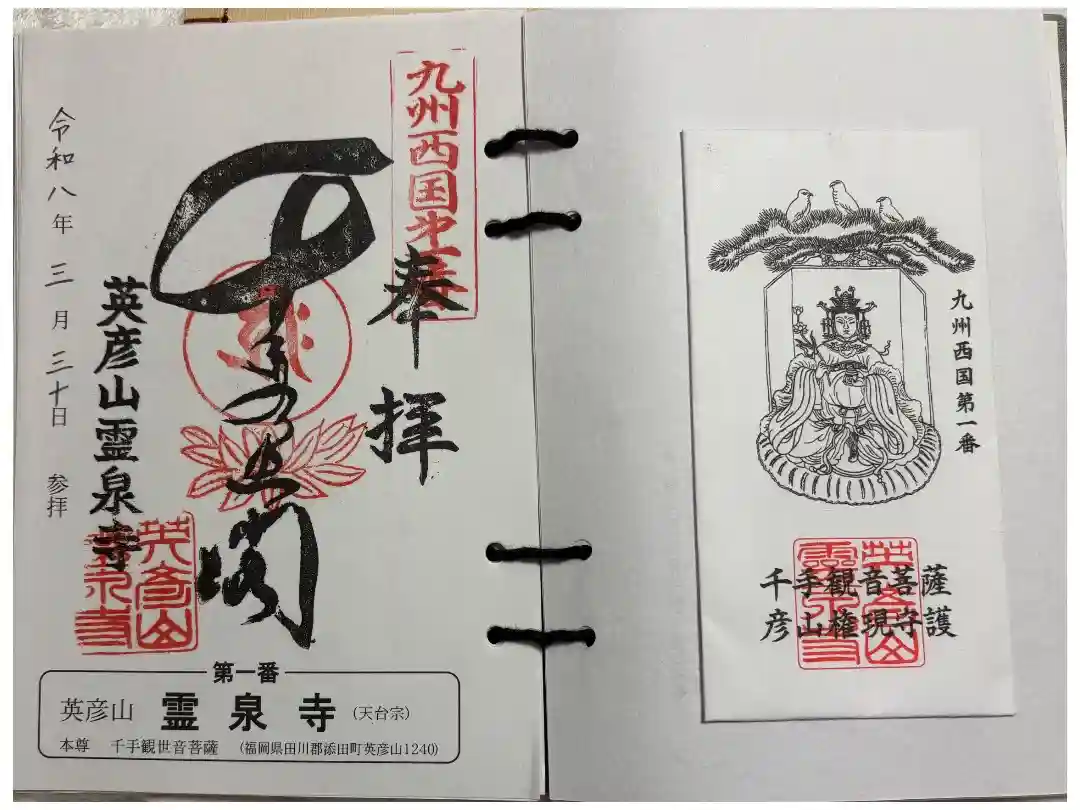 九州西国第一番
奉拝
英彦山霊泉寺
令和八年三月三十日 参拝
英彦山
霊泉寺
第一番
英彦山 霊泉寺 (天台宗)
本尊 千手観世音菩薩 (福岡県田川郡添田町英彦山1240)
九州西国第一番
千手観音菩薩
彦山権現守護
英彦山
霊泉寺